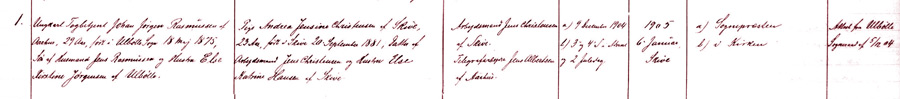 1.
Ungkarl Togbetjent Johan Jørgen Rasmussen af
Aarhus, 29 Aar, født i Ulbølle Sogn 18 Maj 1875,
Søn af Husmand Jens Rasmussen og Hustru Else
Nicoline Jørgensen af Ulbølle.
Pige Andrea Jensine Christensen af Skive,
23 Aar, født i Skive 20 September 1881, Datter af
Arbejdsmand Jens Christensen og Hustru Else
Katrine Hansen af Skive
Arbejdsmand Jens Christensen
af Skive.
Telegrafarbejder Jens Albertsen
af Aarhus.
a) 9 December 1904
b) 3 og 4 S. i Advent
og 2 Juledag
1905
6 Januar
Skive
a) Sognepræsten
b) i Kirken
Attest fra Ulbølle
Sogneraad af 5/12 04